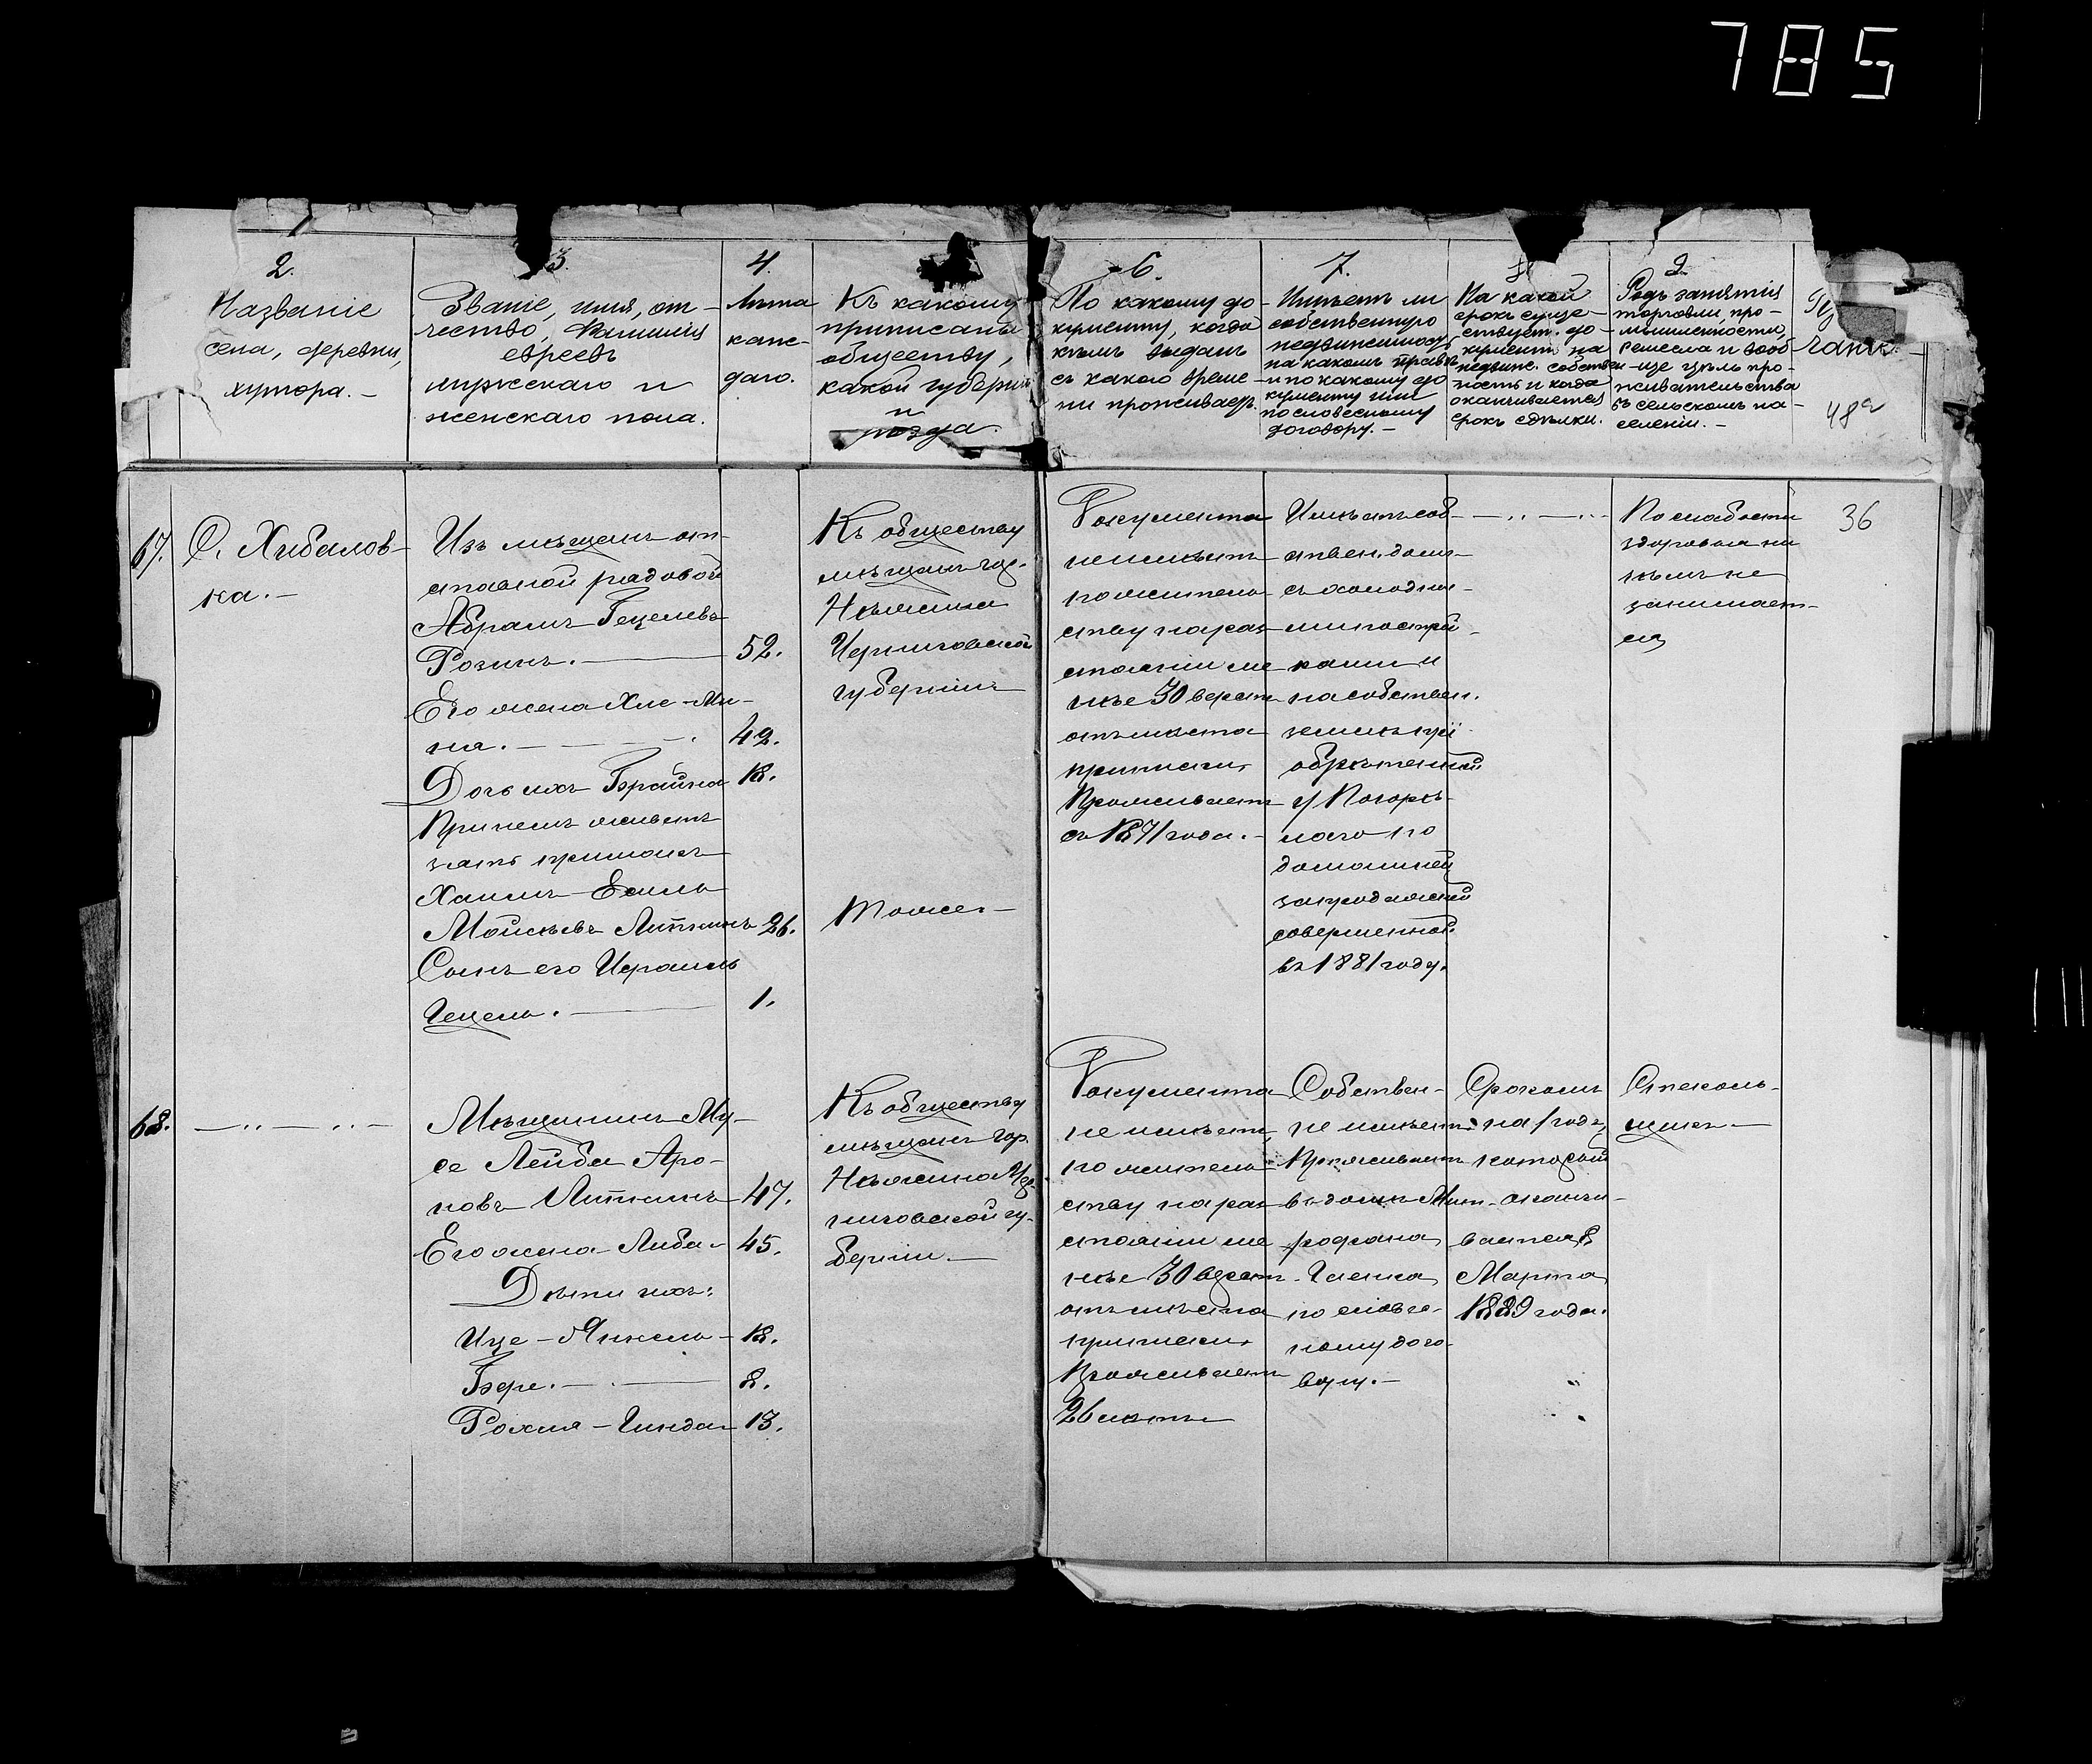 785
2.
Названіе
села, деревни,
хутора. —
3.
Званіе, имя, от-
чество, Фамилія
евреевъ
мужскаго и
женскаго пола.
4.
Лѣта
каж-
даго.
Къ какому
приписаны
обществу,
какой губерніи
и
уѣзда.
6.
По какому до-
кументу, когда
кѣмъ выданъ
съ какого време-
ни проживаетъ.
7.
Имѣетъ ли
собственную
недвижимость
на какомъ правѣ
и по какому до-
кументу или
по словесному
договору. —
На какой
срокъ суще-
ствует. до-
кументъ на
недвиж. собствен-
ность и когда
оканчивается
срокъ сдѣлки.
9.
Родъ занятія
торговли, про-
мышленности,
ремесла и вооб-
ще цѣль про-
живательства
въ сельскомъ на-
селеніи. —
чаніе. —
48а
67.
С. Хибалов-
ка. —
Изъ мѣщанъ от-
ставной рядовой
Абрамъ Гецелевъ
Розинъ. — 52.
Его жена Хае-Ми-
на. — 42.
Дочь ихъ Брайна 18.
При немъ живетъ
зять
Хаимъ
Мойсѣевъ Литминъ 26.
Сынъ его Израиль
Гецель. — 1.
Къ обществу
мѣщанъ гор.
Нѣжина
Черниговской
губерніи
Тоже. —
Документа
неимѣетъ
пожитель-
ству нараз-
стояніи ме
нѣе 30 верстъ
отъ мѣста
приписки,
Проживаетъ
съ 1871 года. —
Имѣетъ соб-
ствен. домъ
съ холодны-
ми пострй-
ками и
насобствен.
землѣ
обрѣтенной
у Погорѣ-
лаго по
домашней
запродажной
совершенной
въ 1881 году.
— „ — „
По слабости
здоровья ни
чѣмъ не
занимает-
ся
36
68.
— „ — „ —
Мѣщанинъ Му-
се Лейба Аро-
новъ Литминъ 47.
Его жена Либа — 45.
Дѣти ихъ:
Ице-Янкель — 18.
Бере. — 8.
Рохля-Гинда — 13.
Къ обществу
мѣщанъ гор.
Нѣжина Чер-
ниговской гу-
берніи. —
Документа
не имѣетъ,
по житель-
ству нараз-
стояніи ме
нѣе 30 верст.
отъ мѣста
приписки,
Проживаетъ
26 лѣтъ
Собствен-
не имѣетъ.
Проживаетъ
въ домѣ Мит-
рофана
по словес-
ному дого-
вору. —
Срокомъ
на 1 годъ,
который
оканчи-
вается 8
Марта
1889 года.
Стеколь-
щикъ —